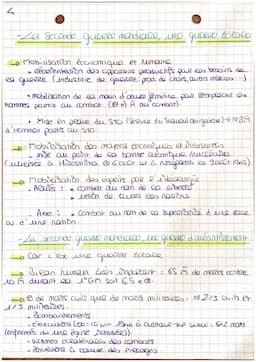 - La seconde guerre mondiale, une guerre totale
→ Mobilisation économique et humaine
• Réorientation des appareils productifs pour les besoins de
la guerre (industrie de guerre: prod de chars, autres
• Mobilisation de la main d'œuvre féminine pour remplacer les
hommes partis au combat
• Mise en place du STO (Service du travail obligatoire) →
d'hommes partis au STO
→ Mobilisation des moyens économiques et
• mise au point de la bombe atomique nucléaire
(utilisée à Hiroshima le 6 août et à Nagasaki le 9 août 1945)
→ Mobilisation des esprits par l'idéologie
- Alliés : • combat au nom de la liberté
• union de toutes les nations
- Axe : • Combat au nom de la supériorité d'une race
ou d'une nation.
- La seconde guerre mondiale, une guerre d'anéantissement
→ Car c'est une guerre totale
→ Bilan humain très important : 65 M de morts contre
10 M durant la 1° GM soit 6,5 x
→ de morts civils que de morts militaires : 2/3 civils et
1/3 militaires.
- Bombardements
- Exécutions (10 juin 1944 à Oradour sur Glane : 642 morts
- Victimes collatérales des combats
à cause des